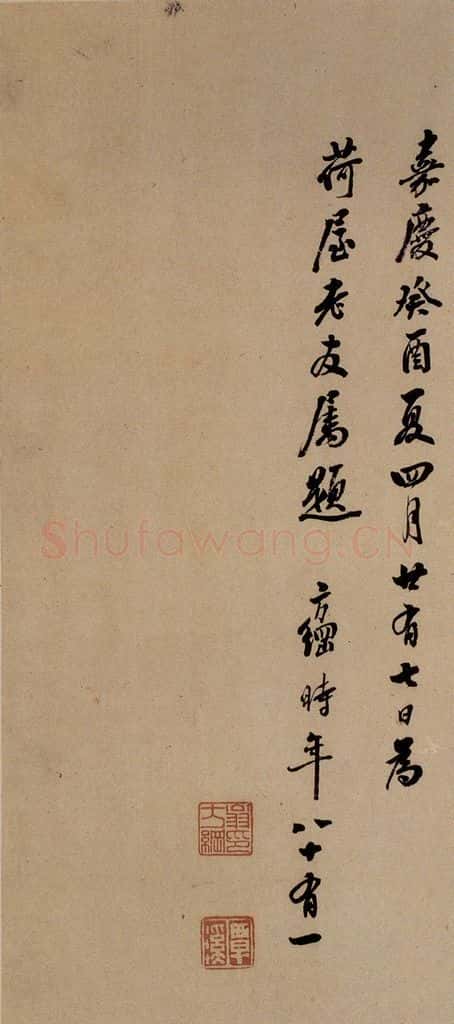 嘉慶癸酉夏四月廿有七日為
荷屋老友屬題
方綱時年八十有一
翁方綱印
覃溪
Shufawang.CN